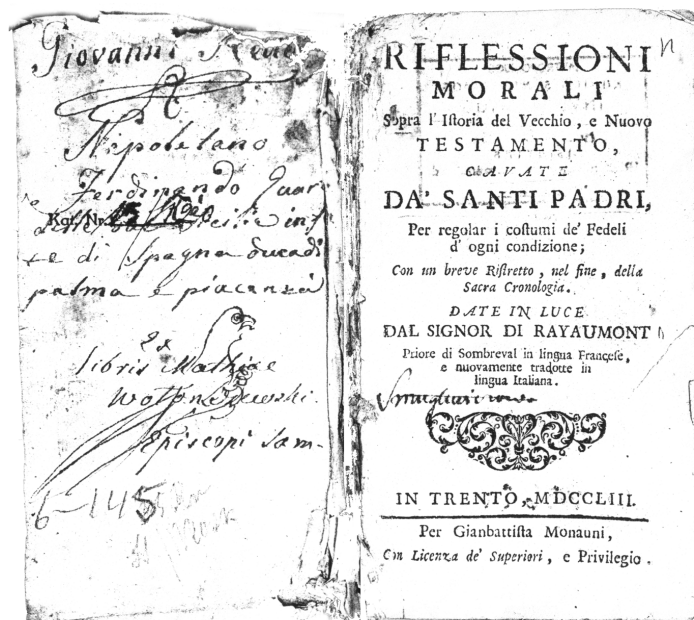 Giovanni
Nipoletano
Ferdinando Quar
Kat. Nr.
te di Spagna ducadi
palma e piacenza
ex
libris Mathiae
Wołonczewski
Episcopi Sam-
6-145
RIFLESSIONI
MORALI
Sopra l'Istoria del Vecchio, e Nuovo
TESTAMENTO,
CAVATE
DA' SANTI PADRI,
Per regolar i costumi de' Fedeli
d' ogni condizione;
Con un breve Ristretto, nel fine, della
Sacra Cronologia.
DATE IN LUCE
DAL SIGNOR DI RAYAUMONT
Priore di Sombreval in lingua Francese,
e nuovamente tradotte in
lingua Italiana.
IN TRENTO, MDCCLIII.
Per Gianbattista Monauni,
Con Licenza de' Superiori, e Privilegio.